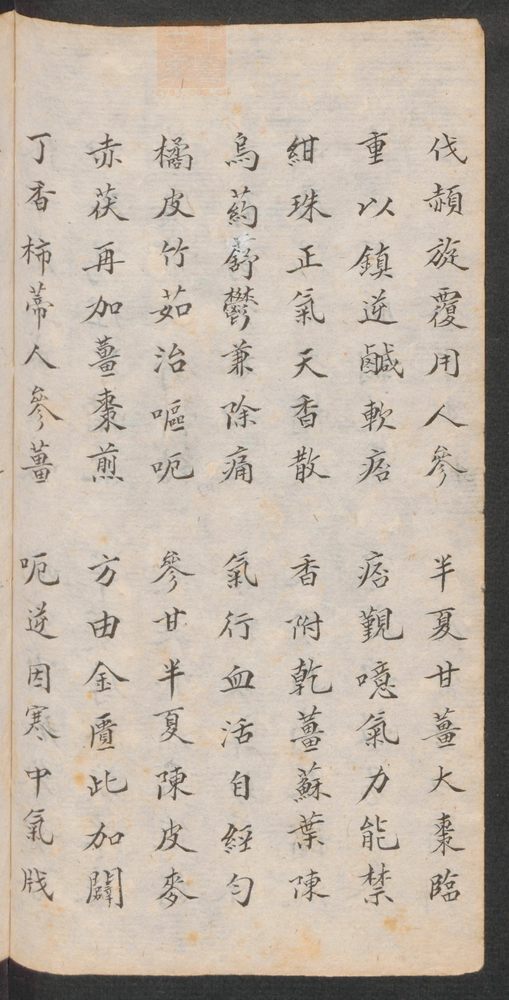 伐頳旋覆用人參 半夏甘薑大棗臨
重以鎮逆鹹軟痞 痞覩噫氣力能禁
紺珠正氣天香散 香附乾薑蘇葉陳
烏葯舒鬱兼除痛 氣行血活自經勻
橘皮竹茹治嘔呃 參甘半夏陳皮麥
赤茯再加薑棗煎 方由金匱此加闢
丁香柿蒂人參薑 呃逆因寒中氣戕